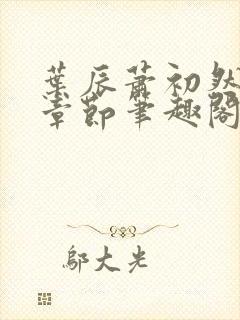 葉辰蕭初然
章節筆趣閣
鄔大光